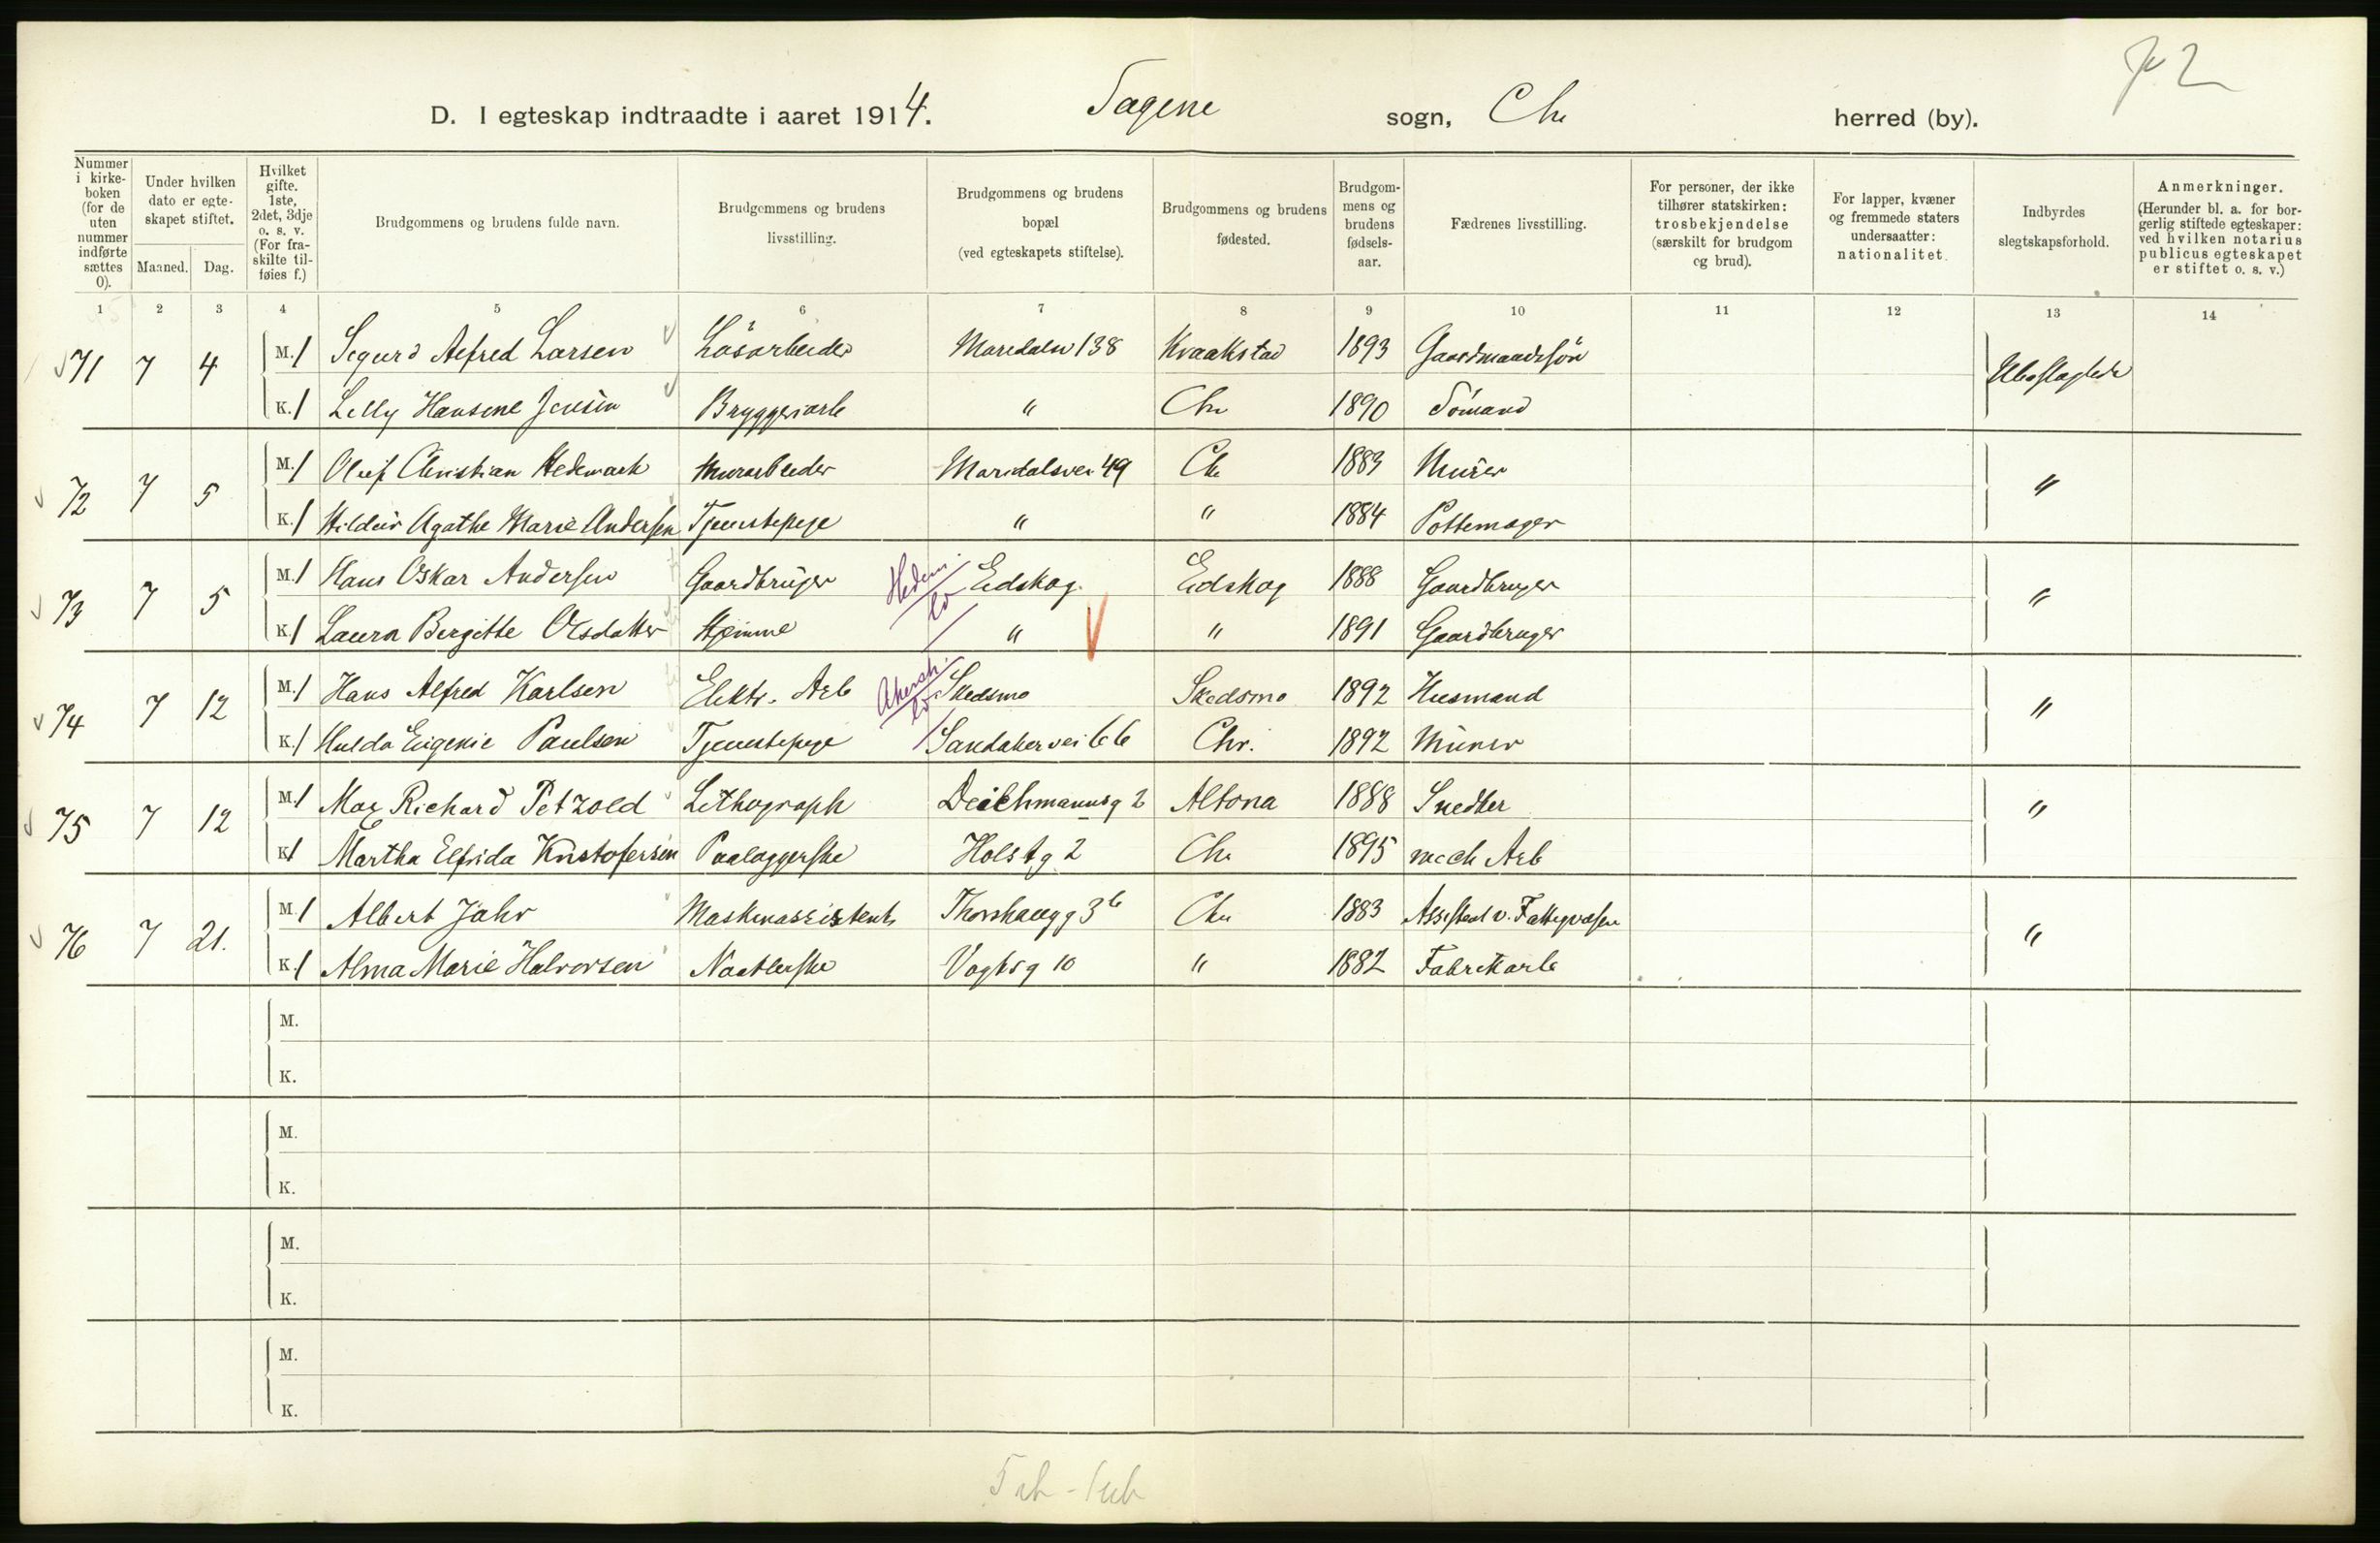 D. I egteskap indtraadte i aaret 1914. Sagene sogn, Chr herred (by).
Nummer i kirke-boken (for de uten nummer indførte sættes 0).
Under hvilken dato er egte-skapet stiftet.
Maaned. Dag.
Hvilket gifte. 1ste, 2det, 3dje o. s. v. (For fra-skilte til-føies f.)
Brudgommens og brudens fulde navn.
Brudgommens og brudens livsstilling.
Brudgommens og brudens bopæl (ved egteskapets stiftelse).
Brudgommens og brudens fødested.
Brudgom-mens og brudens fødsels-aar.
Fædrenes livsstilling.
For personer, der ikke tilhører statskirken: trosbekjendelse (særskilt for brudgom og brud).
For lapper, kvæner og fremmede staters undersaatter: nationalitet.
Indbyrdes slegtskapsforhold.
Anmerkninger. (Herunder bl. a. for bor-gerlig stiftede egteskaper: ved hvilken notarius publicus egteskapet er stiftet o. s. v.)
1 2 3 4 5 6 7 8 9 10 11 12 13 14
71 7 4 M. 1 Sigurd Alfred Larsen Løsarbeider Maridalsv 138 Kraakstad 1893 Gaardmandssøn Ubeslægtede
K. 1 Lelly Hansine Jensen Bryggeriarb " Chr 1890 Sømand
72 7 5 M. 1 Oluf Christian Hedemark Murarbeider Maridalsvei 49 Chr 1883 Murer "
K. 1 Hildur Agathe Marie Andersen Tjenestepige " " 1884 Pottemager
73 7 5 M. 1 Hans Oskar Andersen Gaardbruger Eidskog Eidskog 1888 Gaardbruger "
K. 1 Laura Bergitte Olsdatter Hjemme " " 1891 Gaardbruger
74 7 12 M. 1 Hans Alfred Karlsen Elektr. Arb Akersh. Skedsmo Skedsmo 1892 Husmand "
K. 1 Hulda Eugenie Paulsen Tjenestepige Sandakervei 66 Chr. 1892 Murer
75 7 12 M. 1 Max Richard Petzold Lithograph Deichmannsg 2 Altona 1888 Snedker "
K. 1 Martha Elfrida Kristofersen Paalæggerske Holstg 2 Chr 1895 mech Arb
76 7 21. M. 1 Albert Jahr Maskinassistent Thorshaugg 3b Chr 1883 Assistent v. Fattigvæsen "
K. 1 Alma Marie Halvorsen Naatlerske Vogtsg 10 " 1882 Fabrikarb
M.
K.
M.
K.
M.
K.
M.
K.